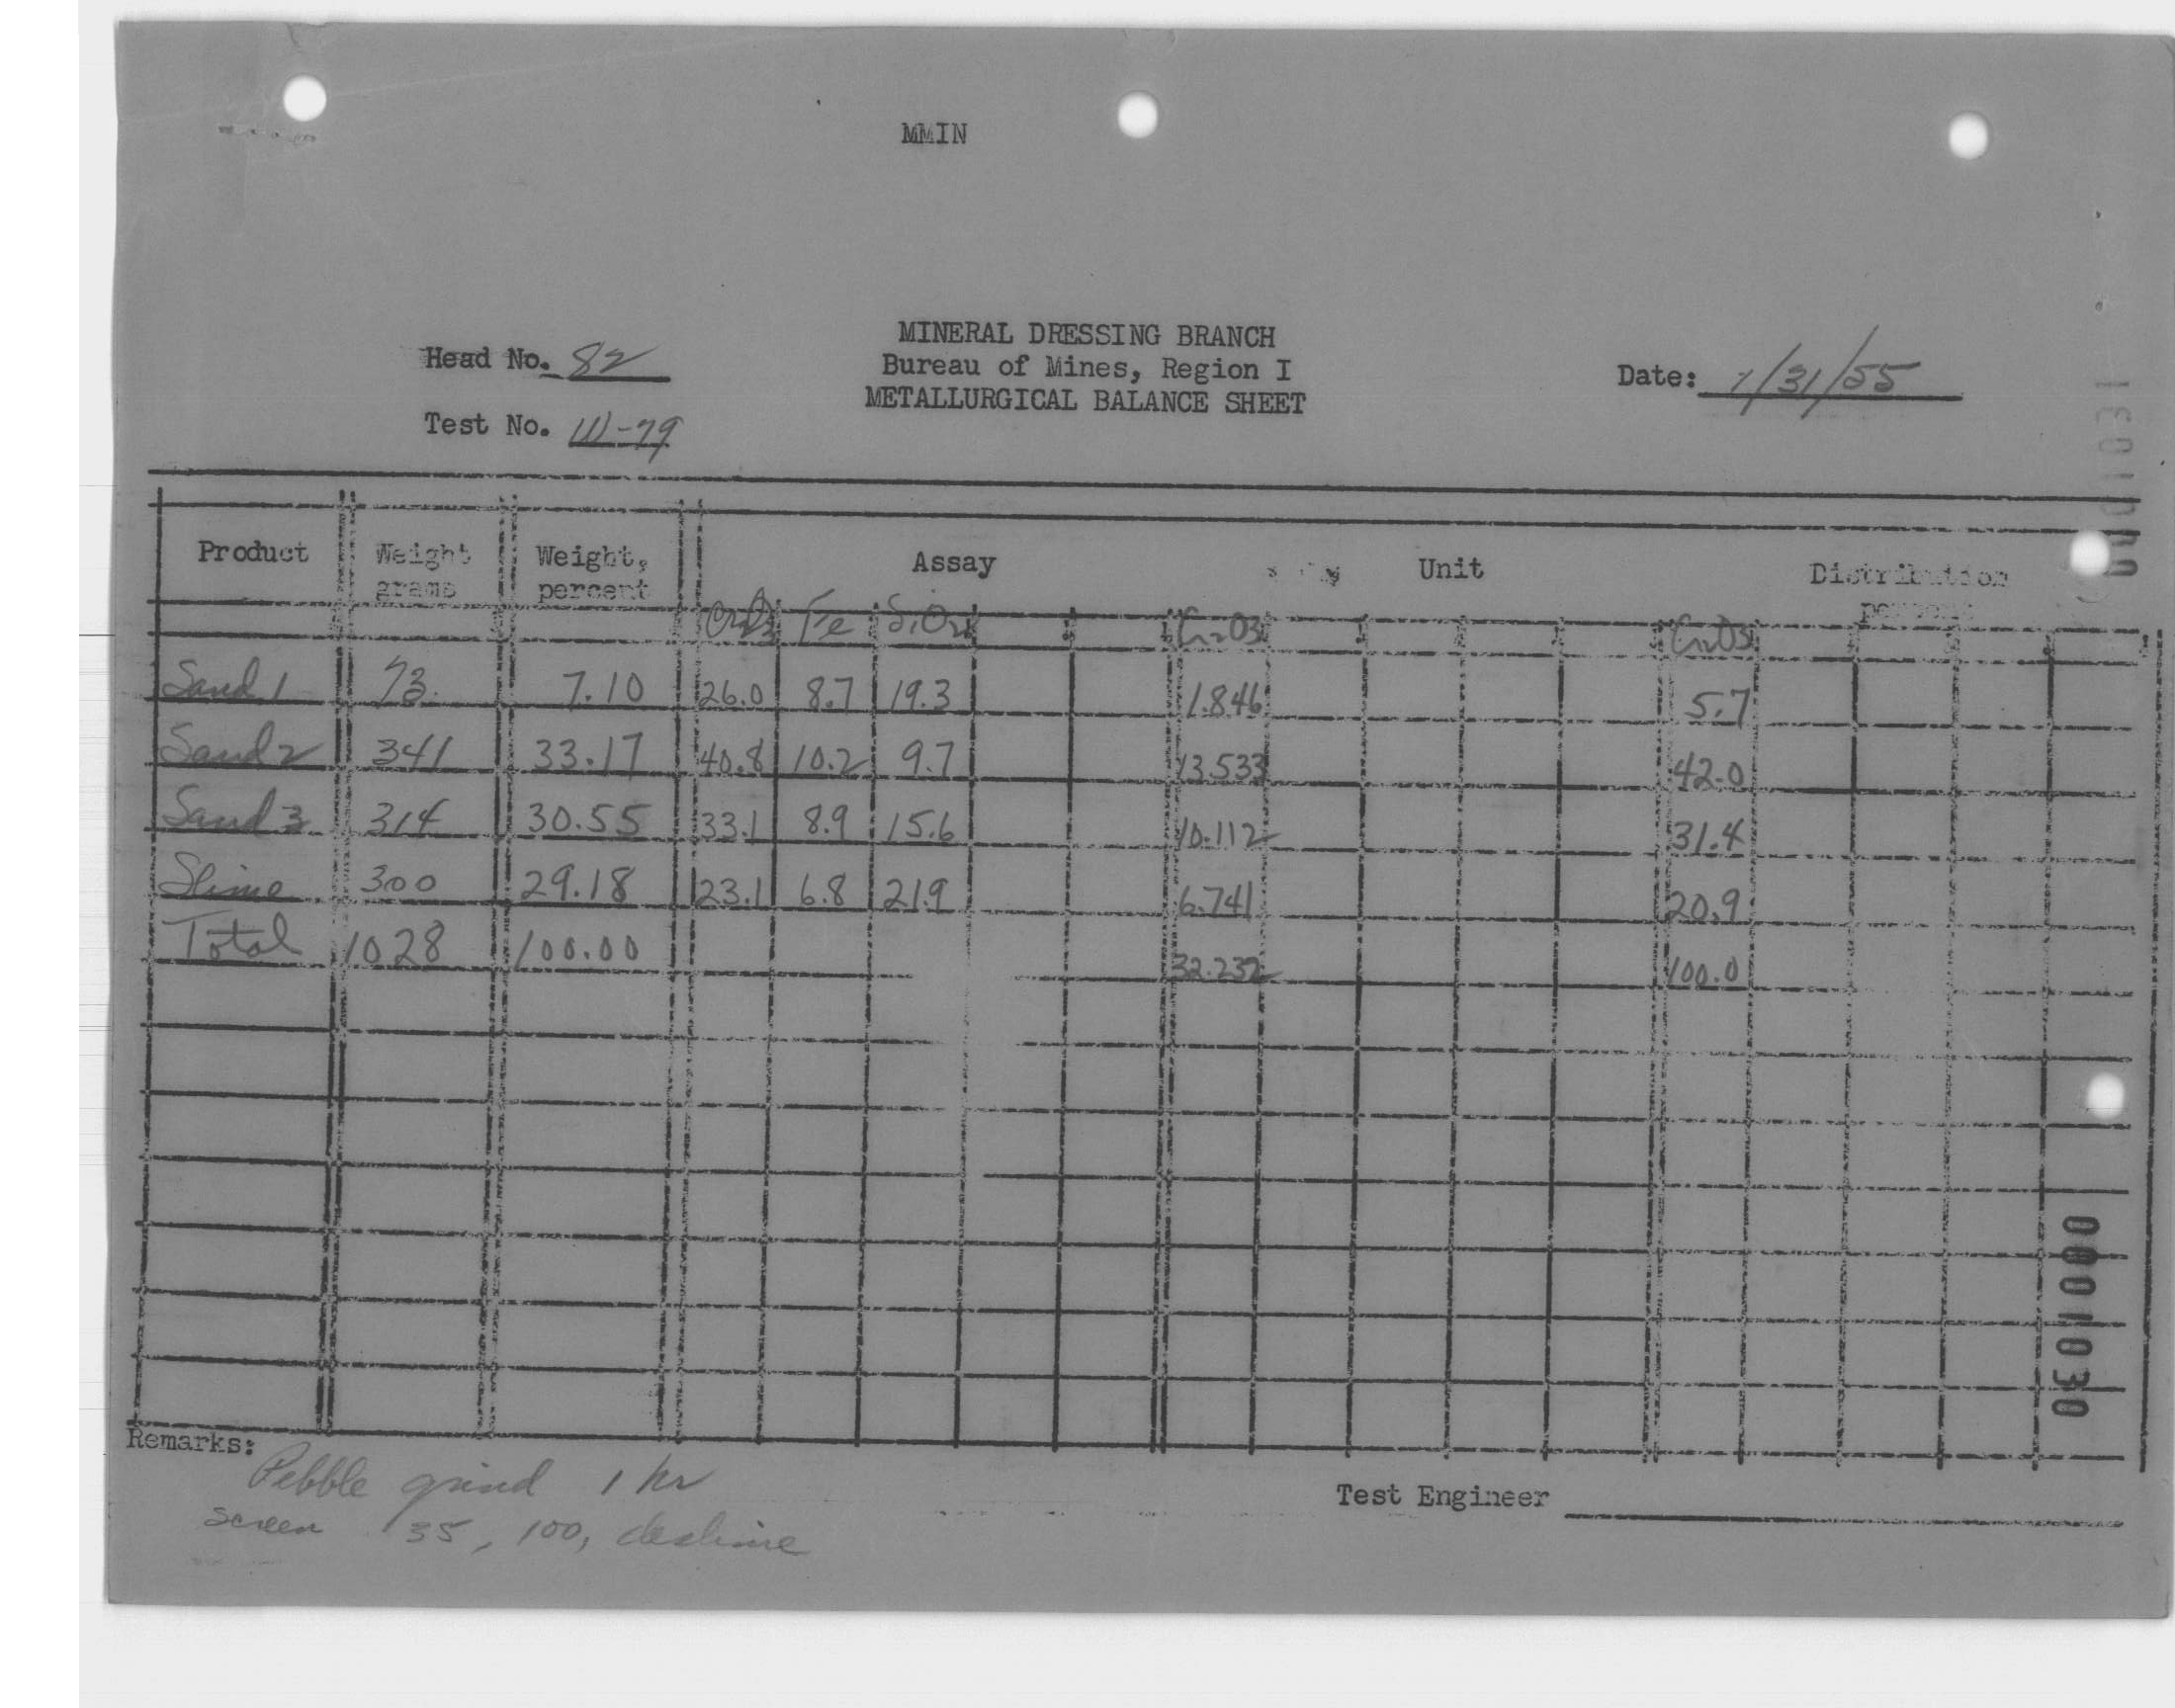 MMIN
MINERAL DRESSING BRANCH
Head No. 82
Bureau of Mines, Region I
Date: 1/31/55
METALLURGICAL BALANCE SHEET
Test No. W-79
Product Weight grams Weight, percent Assay Unit Distribution percent
Cr2O3 Fe SiO2 Cr2O3 Cr2O3
Sand 1 73 7.10 26.0 8.7 19.3 1.846 5.7
Sand 2 341 33.17 40.8 10.2 9.7 13.533 42.0
Sand 3 314 30.55 33.1 8.9 15.6 10.112 31.4
Slime 300 29.18 23.1 6.8 21.9 6.741 20.9
Total 1028 100.00 32.232 100.0
Remarks:
Pebble grind 1 hr
screen 35, 100, deslime
Test Engineer
0001031
0001030